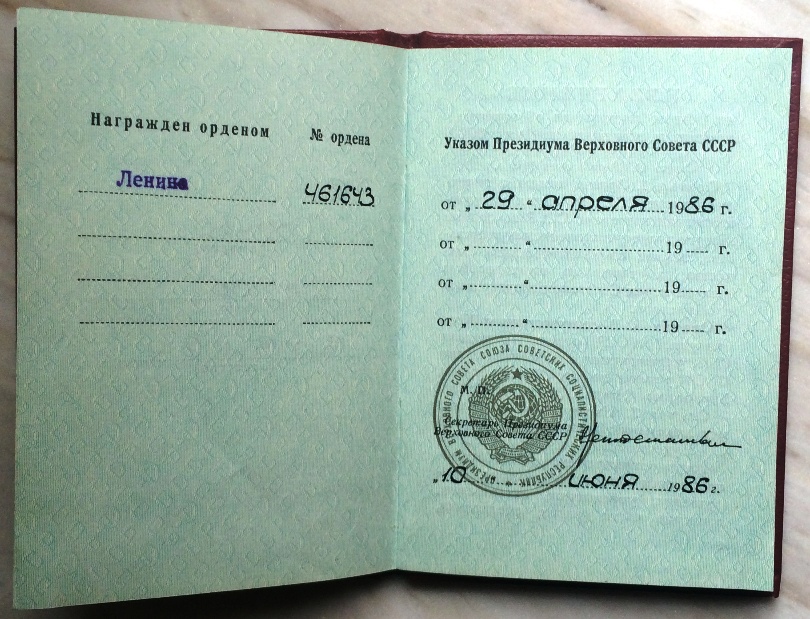 Награжден орденом
№ ордена
Ленина
461643
Указом Президиума Верховного Совета СССР
от „ 29 “ апреля 1986 г.
от „ “ 19 г.
от „ “ 19 г.
от „ “ 19 г.
ПРЕЗИДИУМ ВЕРХОВНОГО СОВЕТА СОЮЗА СОВЕТСКИХ СОЦИАЛИСТИЧЕСКИХ РЕСПУБЛИК
М. П.
Секретарь Президиума
Верховного Совета СССР
„10 июня 1986 г.